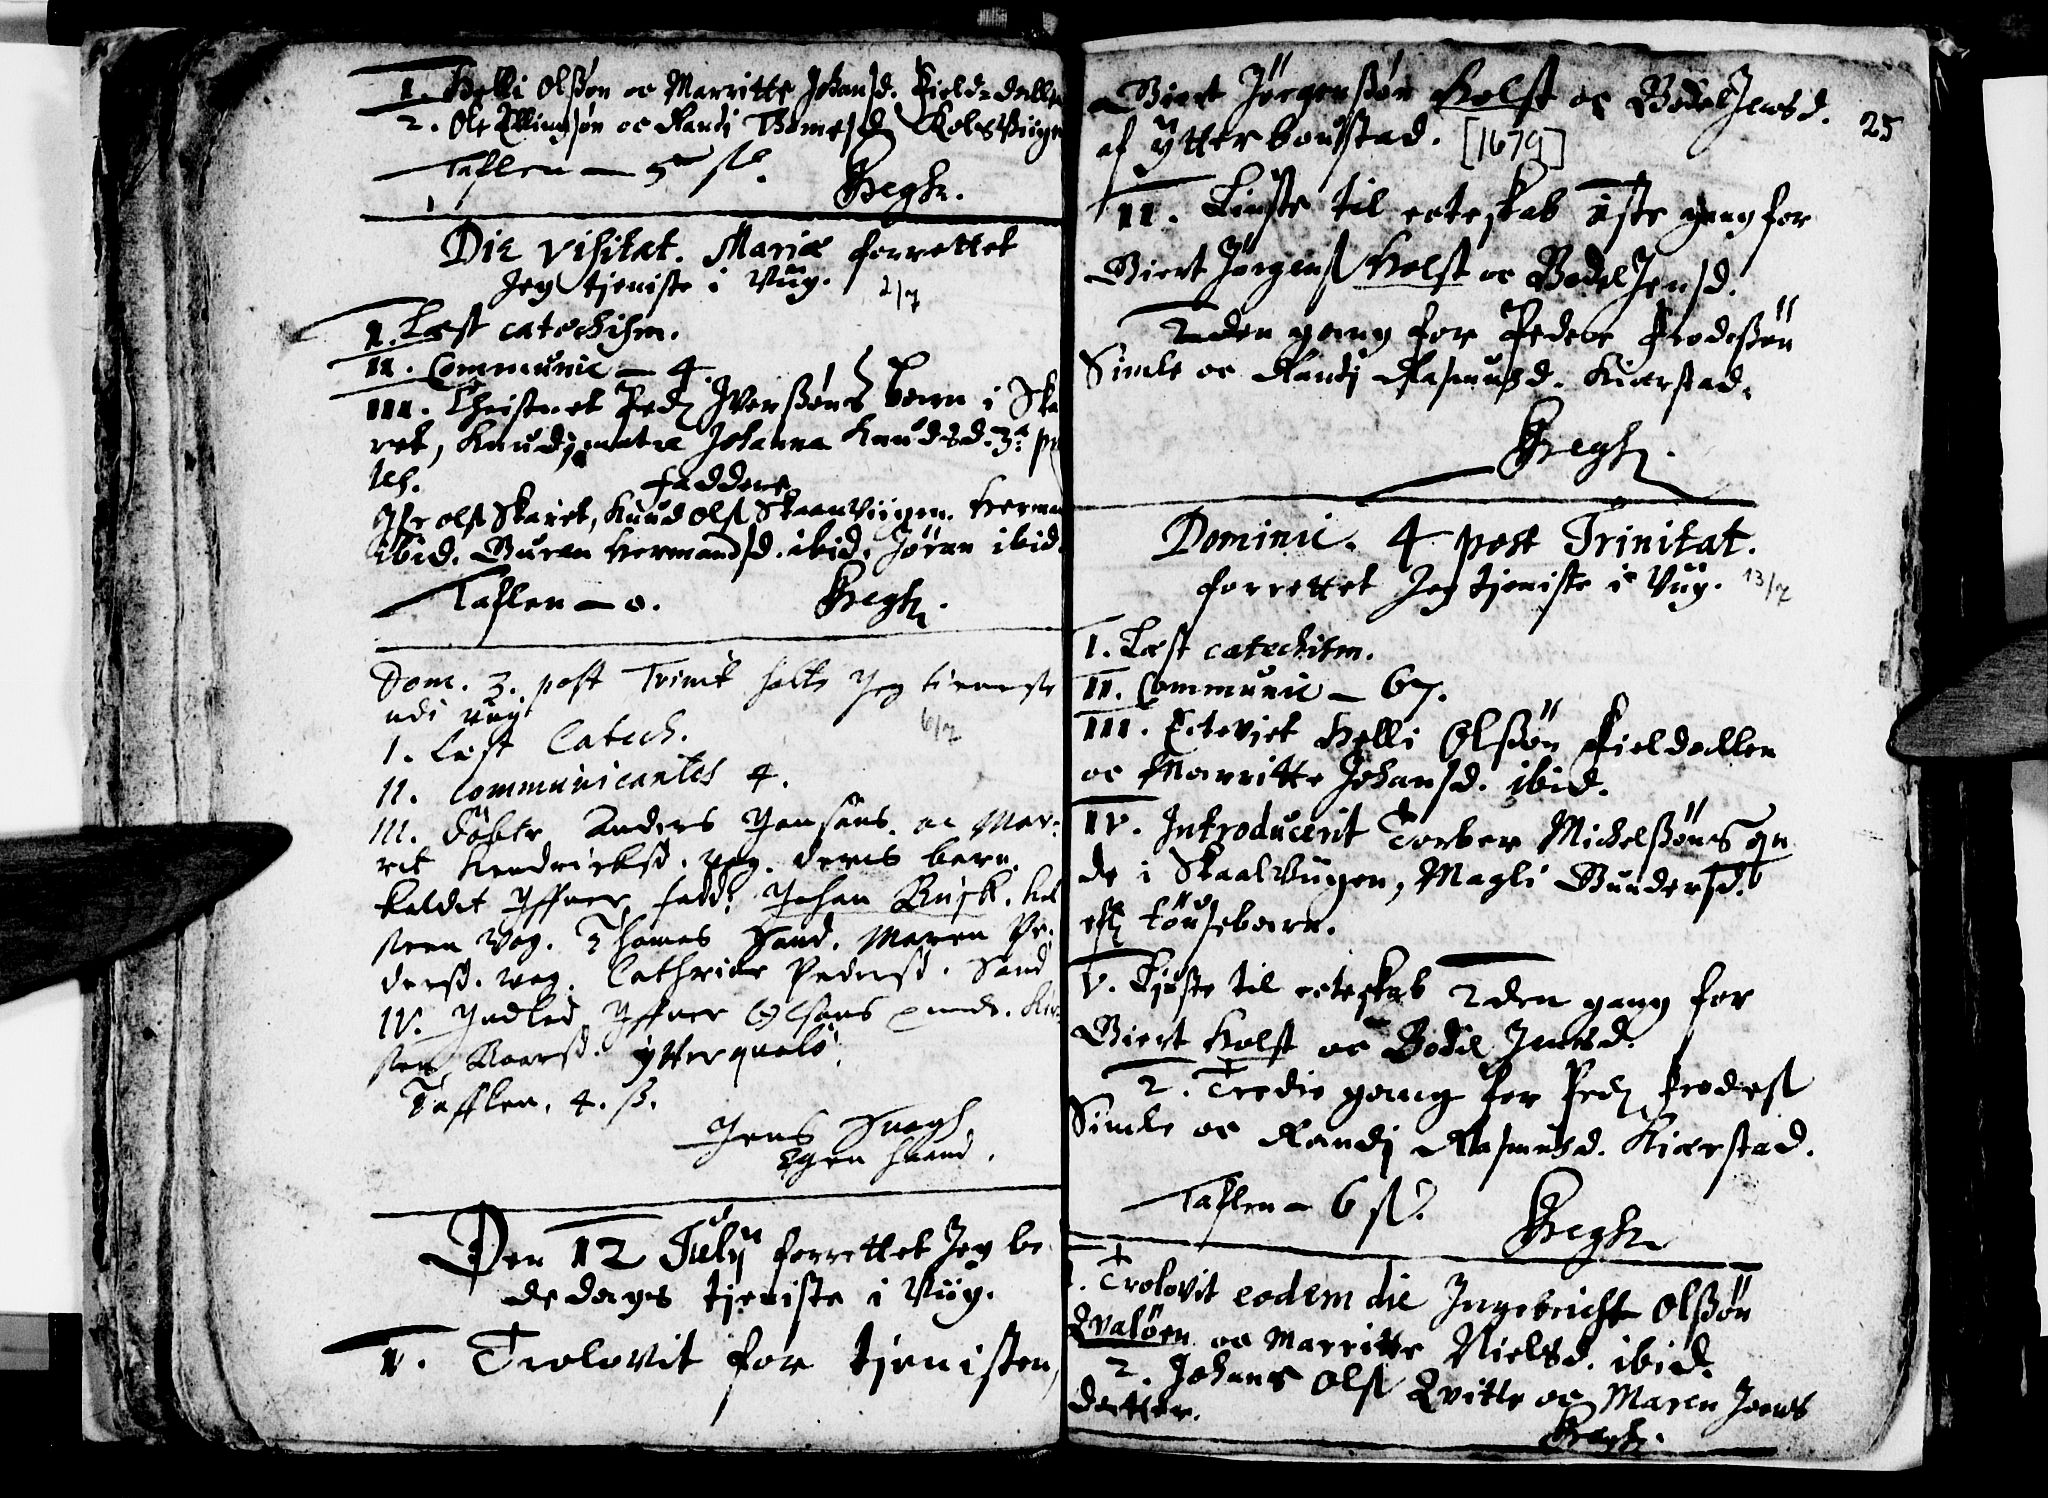 1. Helli Olßøn oc Marritte Johansd. Fieldsdallen
2. Ole Ellingsøn oc Randj Thomesd. Kolsviigen
Taflen — 5 sl.
Hegh.
Die visitat. Mariæ forrettet
Jeg tjeniste i Vüg. 2/7
I. Læst catechism.
II. Communic — 4
III. Christnet Ped. Iverßøns barn i Ska
ret, Knud, matre Johanna Knudsd. 3a
Faddere
Ifr olß Skaret, Knud Olß Skaanviigen. Herman
ibid. Guran Hermandsd. ibid. Jøran ibid.
Taflen — 0.
Hegh.
Dom. 3. post Trinit holte Jeg tieneste
udi vug 6/7
I. Læst Catech.
II. Communicantes 4.
III. Döbte Anders Jensøns oc Mar-
rit Hendrichsd. vog. deres barn
kaldet Iffuer, fadd. Johan Busk.
steen Vog. Thomas Sand. Maren Pe-
dersd. vog. Cathrine Pedersd. Sand
IV. Indled Iffuer Olsøns quinde. Kir-
sten Roersd. ytterqualö.
Tafflen. 4. ß.
Jens Huegh
Egen haand.
Den 12 Julij forrettet Jeg be
dedags tjeniste i Vüg.
I. Trolovit for tjenisten,
Giert Jørgenßøn Holst oc Bodel Jensd.
af ytterboustad. [1679]
25
II. Liuste til ecteskab 1ste gang for
Giert Jørgenß Holst oc Bodel Jensd.
2den gang for Peder Frodeßøn
Simle oc Randj Rasmusd. Kiærstad.
Hegh.
Dominic. 4 post Trinitat.
forrettet Jeg tjeniste i Vüg. 13/7
I. Læst catechism.
II. Communic — 67.
III. Ecteviet Helli Olßøn Fieldallen
oc Marritte Johansd. ibid.
IV. Introducerit Torber Michelßøns qn
de i Skaalvügen, Magli Gundersd.
eft töusebarn.
V. Liuste til ecteskab 2den gang for
Giert Holst oc Bodel Jensd.
2. Tredie gang for Ped. Frodesß
Simle oc Randj Rasmusd. Kiærstad.
Taflen — 6 sl.
Hegh.
1. Trolovit eodem die Ingebricht Olßøn
Qvaløen oc Marritte Nielsd. ibid.
2. Johans Olß Qvitle oc Maren Joens
datter.
Hegh.